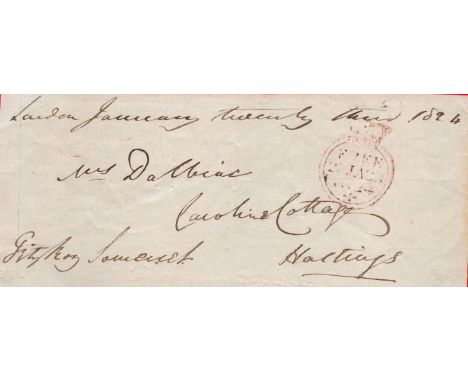 London January twenty three 1824
Mrs Dalbiac
Caroline Cottage
Fitzroy Somerset
Hastings
FREE